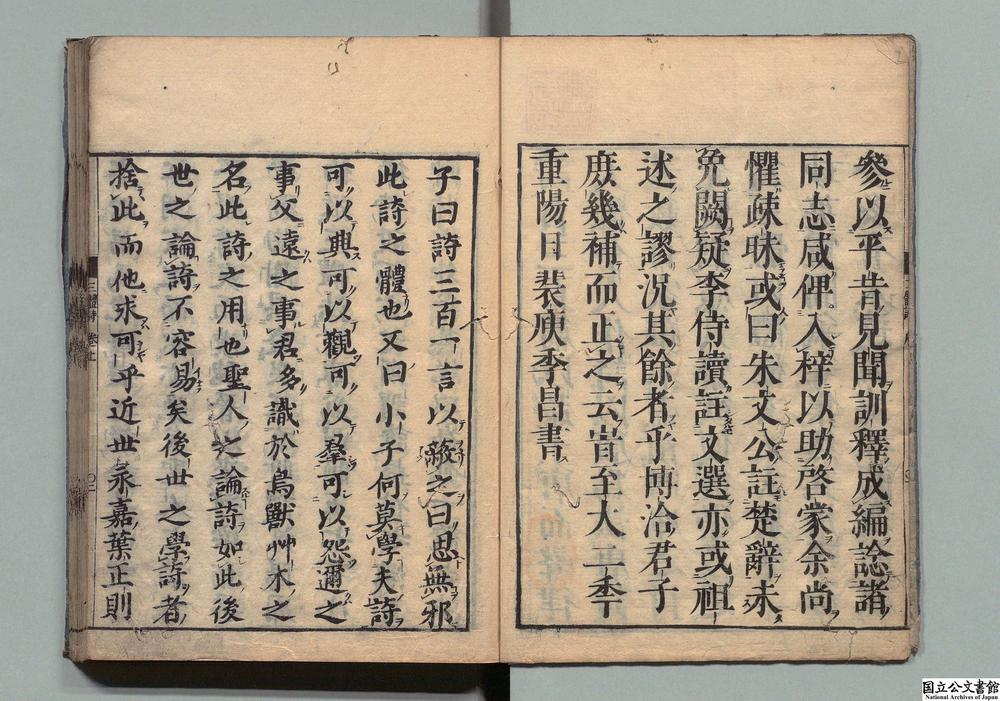 參以平昔見聞訓釋成編諗諸
同志咸俾入梓以助啓蒙余尚
懼疎昧或曰朱文公註楚辭未
免闕疑李侍讀註文選亦或祖
述之謬況其餘者乎博洽君子
庶幾補而正之云旹至大二季
重陽日裴庾季昌書
子曰詩三百一言以蔽之曰思無邪
此詩之體也又曰小子何莫學夫詩
可以興可以觀可以羣可以怨邇之
事父遠之事君多識於鳥獸艸木之
名此詩之用也聖人之論詩如此後
世之論詩不容易矣後世之學詩者
捨此而他求可乎近世永嘉葉正則
三體詩 卷上
国立公文書館
National Archives of Japan